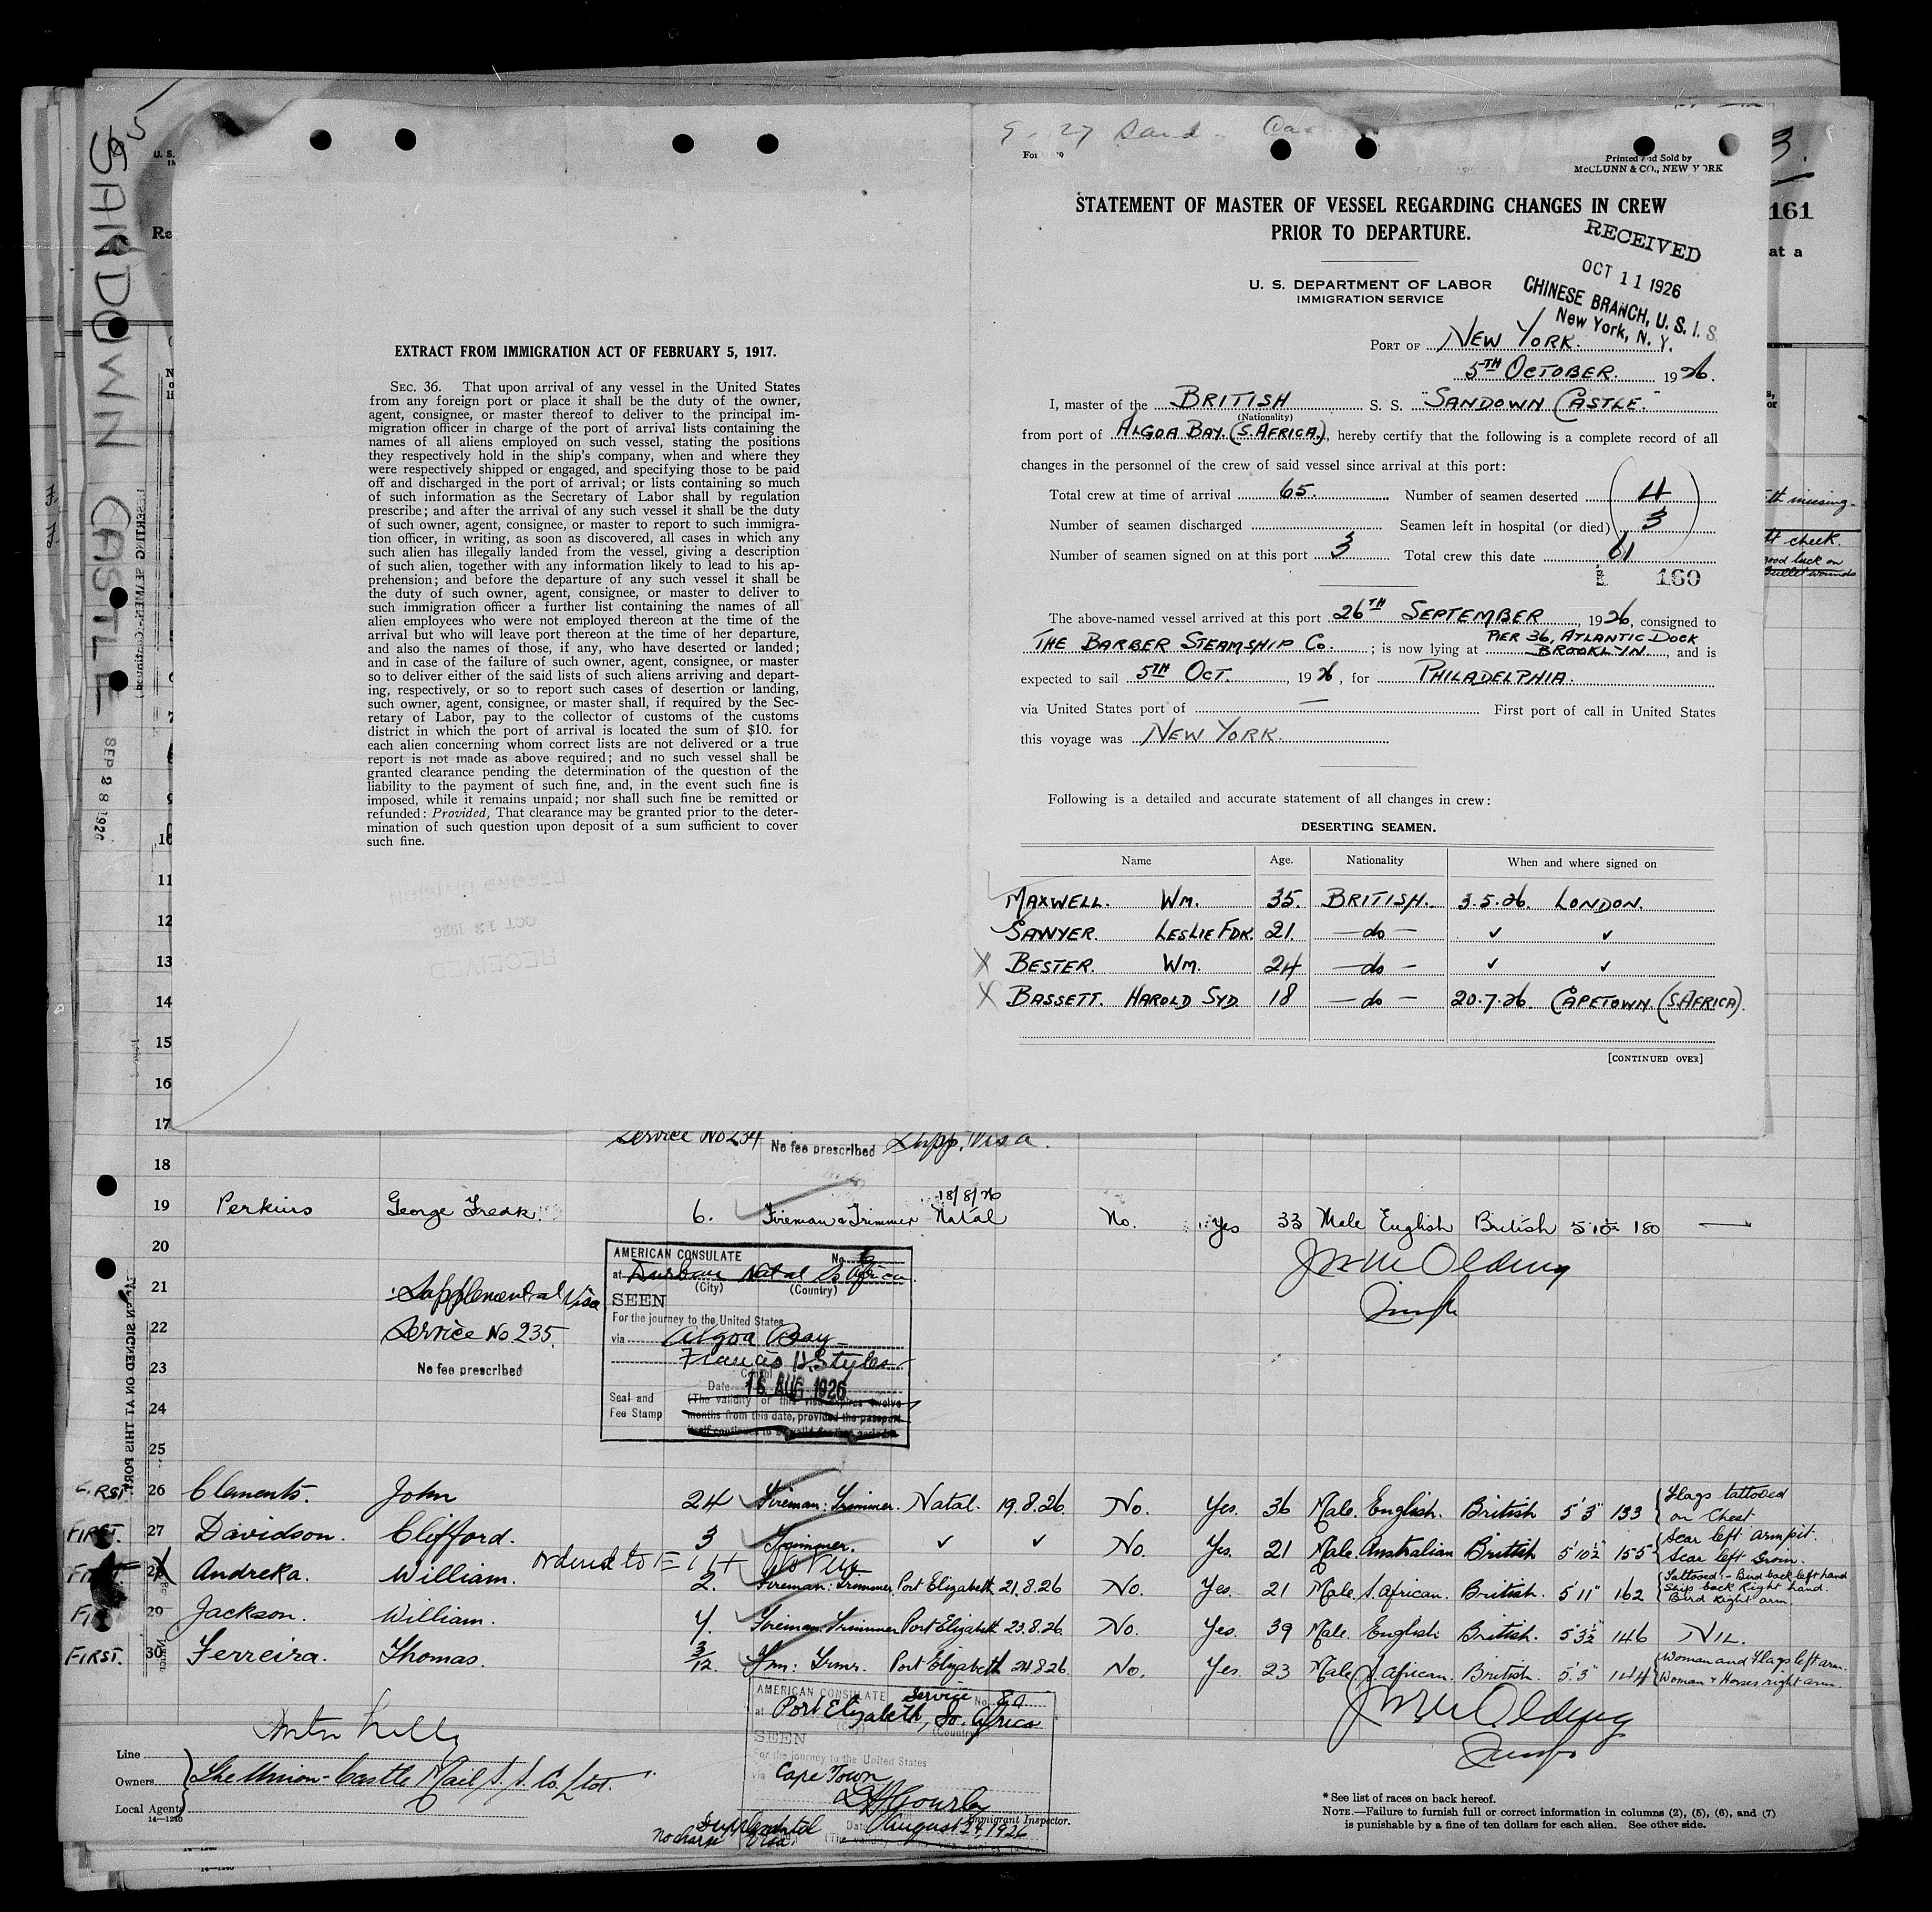 5
SANDOWN CASTLE
SEP 28 1926
U. S.
Re
EXTRACT FROM IMMIGRATION ACT OF FEBRUARY 5, 1917.
SEC. 36. That upon arrival of any vessel in the United States
from any foreign port or place it shall be the duty of the owner,
agent, consignee, or master thereof to deliver to the principal im-
migration officer in charge of the port of arrival lists containing the
names of all aliens employed on such vessel, stating the positions
they respectively hold in the ship's company, when and where they
were respectively shipped or engaged, and specifying those to be paid
off and discharged in the port of arrival; or lists containing so much
of such information as the Secretary of Labor shall by regulation
prescribe; and after the arrival of any such vessel it shall be the duty
of such owner, agent, consignee, or master to report to such immigra-
tion officer, in writing, as soon as discovered, all cases in which any
such alien has illegally landed from the vessel, giving a description
of such alien, together with any information likely to lead to his ap-
prehension; and before the departure of any such vessel it shall be
the duty of such owner, agent, consignee, or master to deliver to
such immigration officer a further list containing the names of all
alien employees who were not employed thereon at the time of the
arrival but who will leave port thereon at the time of her departure,
and also the names of those, if any, who have deserted or landed;
and in case of the failure of such owner, agent, consignee, or master
so to deliver either of the said lists of such aliens arriving and depart-
ing, respectively, or so to report such cases of desertion or landing,
such owner, agent, consignee, or master shall, if required by the Sec-
retary of Labor, pay to the collector of customs of the customs
district in which the port of arrival is located the sum of $10. for
each alien concerning whom correct lists are not delivered or a true
report is not made as above required; and no such vessel shall be
granted clearance pending the determination of the question of the
liability to the payment of such fine, and, in the event such fine is
imposed, while it remains unpaid; nor shall such fine be remitted or
refunded: Provided, That clearance may be granted prior to the deter-
mination of such question upon deposit of a sum sufficient to cover
such fine.
RECORD DIVISION
OCT 13 1926
RECEIVED
Printed and Sold by
McCLUNN & CO., NEW YORK
3.
161
at a
STATEMENT OF MASTER OF VESSEL REGARDING CHANGES IN CREW
PRIOR TO DEPARTURE.
RECEIVED
OCT 11 1926
CHINESE BRANCH, U. S. I. S.
New York, N. Y.
U. S. DEPARTMENT OF LABOR
IMMIGRATION SERVICE
PORT OF NEW YORK.
5TH OCTOBER. 1926.
I, master of the BRITISH S. S. "SANDOWN CASTLE."
(Nationality)
from port of ALGOA BAY (S. AFRICA.), hereby certify that the following is a complete record of all
changes in the personnel of the crew of said vessel since arrival at this port:
Total crew at time of arrival 65. Number of seamen deserted 4
Number of seamen discharged Seamen left in hospital (or died) 3
Number of seamen signed on at this port 3 Total crew this date 61
160
The above-named vessel arrived at this port 26TH SEPTEMBER, 1926, consigned to
THE BARBER STEAMSHIP Co.; is now lying at PIER 36, ATLANTIC DOCK BROOKLYN., and is
expected to sail 5TH OCT., 1926, for PHILADELPHIA.
via United States port of — First port of call in United States
this voyage was NEW YORK.
Following is a detailed and accurate statement of all changes in crew:
DESERTING SEAMEN.
Name Age. Nationality When and where signed on
MAXWELL. WM. 35. BRITISH. 3.5.26. LONDON.
SAWYER. LESLIE FDK. 21. —do— ✓ ✓
X BESTER. WM. 24 —do— ✓ ✓
X BASSETT. HAROLD SYD. 18 —do— 20.7.26. CAPETOWN. (S.AFRICA).
[CONTINUED OVER]
missing-
cheek.
good luck on
Bullet wounds
10
11
12
13
14
15
16
17
Service No 234 No fee prescribed Supp. Visa.
18
19 Perkins George Fredk. 6. Fireman & Trimmer 18/8/26 Natal No. Yes 33 Male English British 5 10½ 180 —
20
21
22
23
24
25
Supplemental Visa
Service No 235.
No fee prescribed
AMERICAN CONSULATE No.
at Durban Natal So Africa.
(City) (Country)
SEEN
For the journey to the United States
via Algoa Bay
Francis H. Styles
Date 16 AUG 1926
Seal and
Fee Stamp
(The validity of this visa expires twelve
months from this date, provided the passport
itself continues to be valid for that period.)
J M Olding
FIRST. 26 Clements. John 24 Fireman: Trimmer. Natal. 19.8.26. No. Yes. 36 Male. English. British 5'3" 133 Flags tattooed on Chest
FIRST. 27 Davidson. Clifford. 3 Trimmer. ✓ ✓ No. Yes. 21 Male. Australian British 5'10½" 155 Scar left armpit. Scar left Groin.
ordered to
X Andreka. William. 2. Fireman: Trimmer. Port Elizabeth 21.8.26 No. Yes. 21 Male. S. African. British. 5'11" 162 Tattooed:- Bird back left hand Ship back Right hand. Bird Right arm.
29 Jackson. William. 4. Fireman. Trimmer Port Elizabeth 23.8.26. No. Yes. 39 Male. English British. 5'3½" 146 NIL.
FIRST. 30 Ferreira. Thomas. 3/12. Fmn: Trmr. Port Elizabeth 24.8.26 No. Yes. 23 Male S. African. British. 5'.3" 144 Woman and Flags left arm. Woman & Horses right arm.
J M Olding
AMERICAN CONSULATE Service No. 80
at Port Elizabeth, So. Africa
(Country)
SEEN
For the journey to the United States
via Cape Town
Date August 24, 1926
Supplemental Visa.
No charge
Immigrant Inspector.
Line
Owners The Union-Castle Mail S. S. Co. Ltd.
Local Agents
14—1240
* See list of races on back hereof.
NOTE.—Failure to furnish full or correct information in columns (2), (5), (6), and (7)
is punishable by a fine of ten dollars for each alien. See other side.